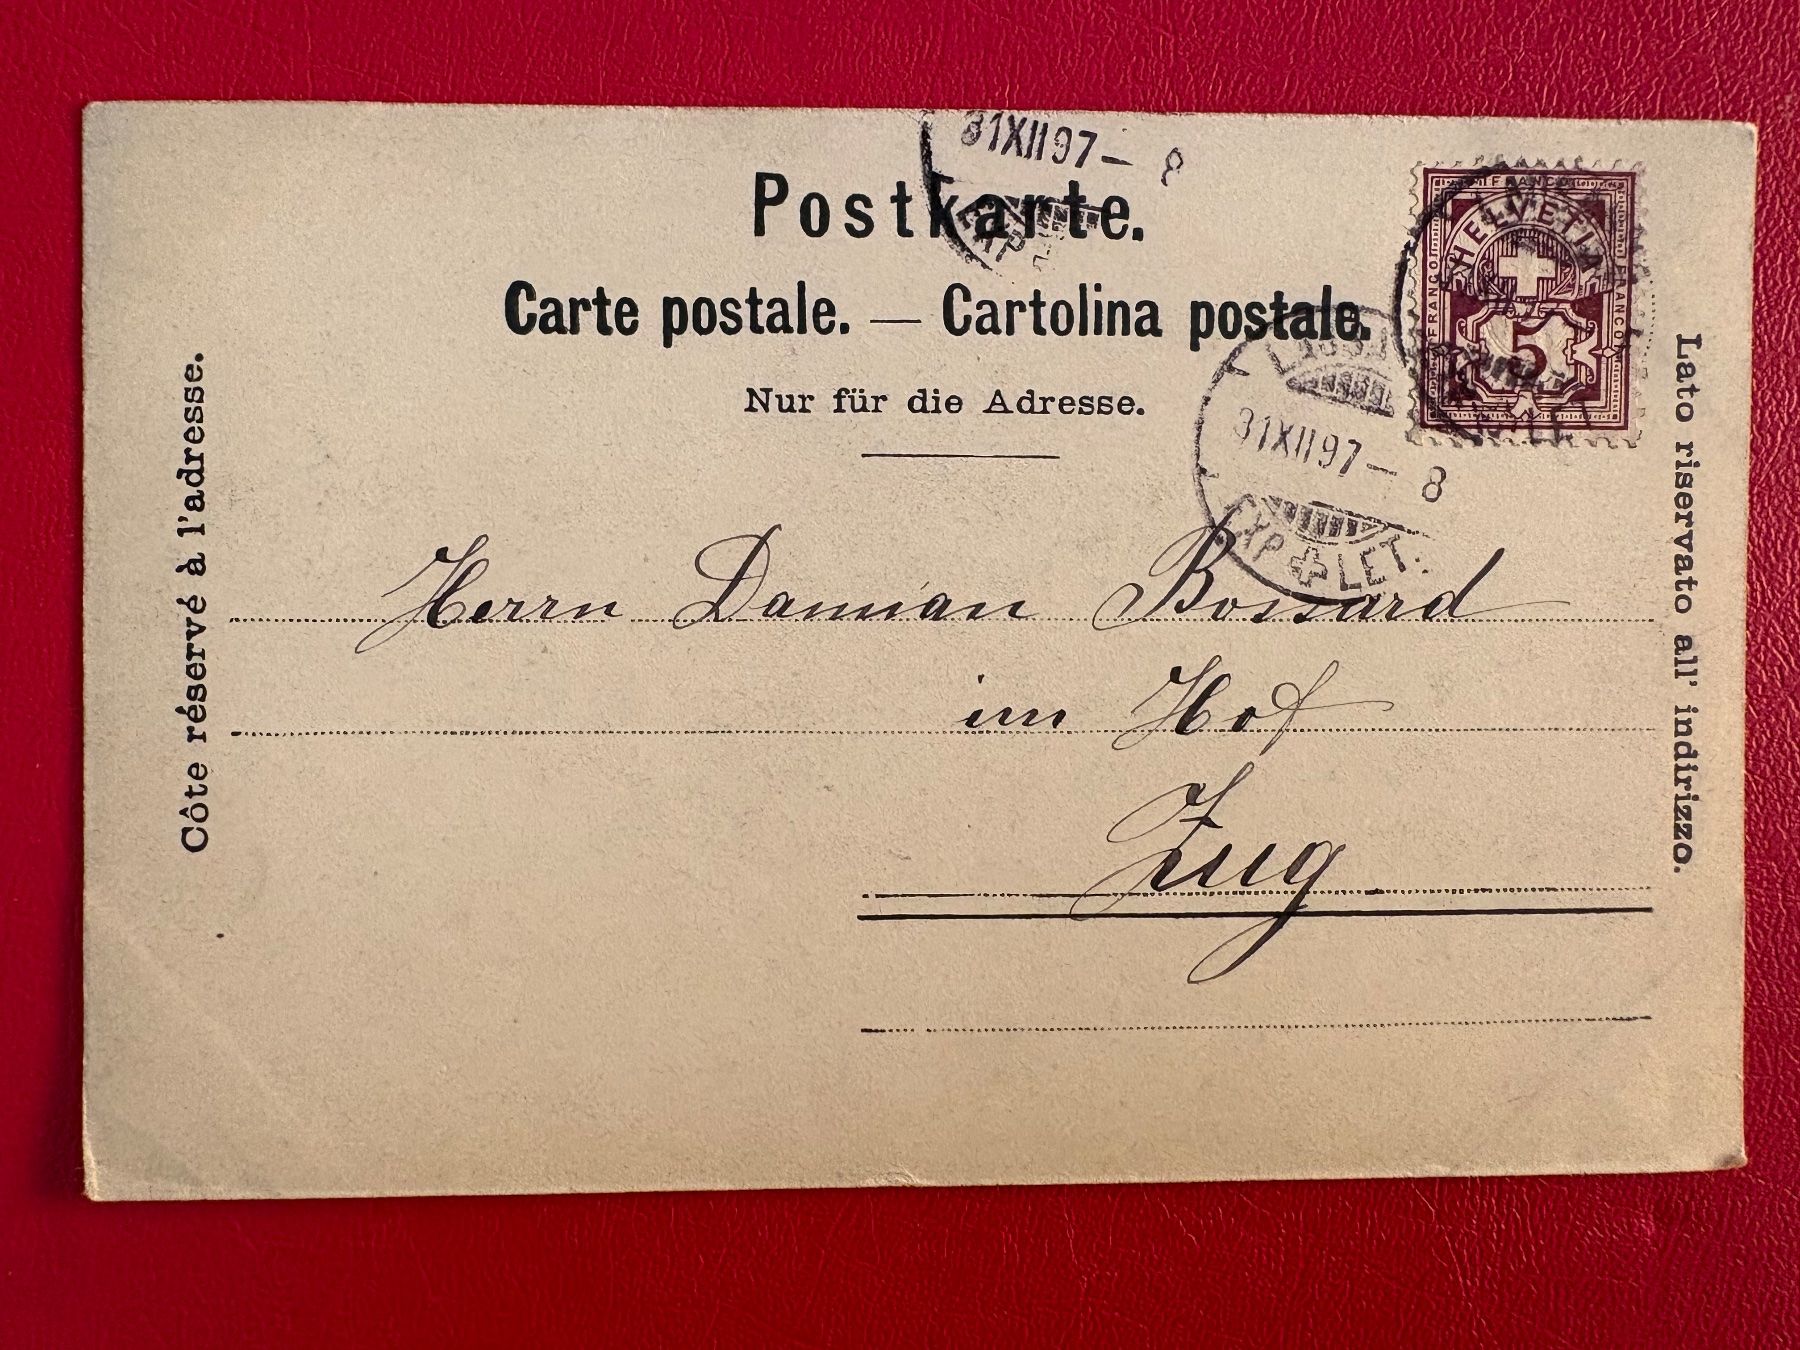 31XII97– 8
EXP
Postkarte.
Carte postale. — Cartolina postale.
Nur für die Adresse.
FRANCO
HELVETIA
FRANCO
FRANCO
5
31XII97– 8
EXP + LET.
Côte réservé à l'adresse.
Lato riservato all' indirizzo.
Herrn Damian Bossard
im Hof
Zug